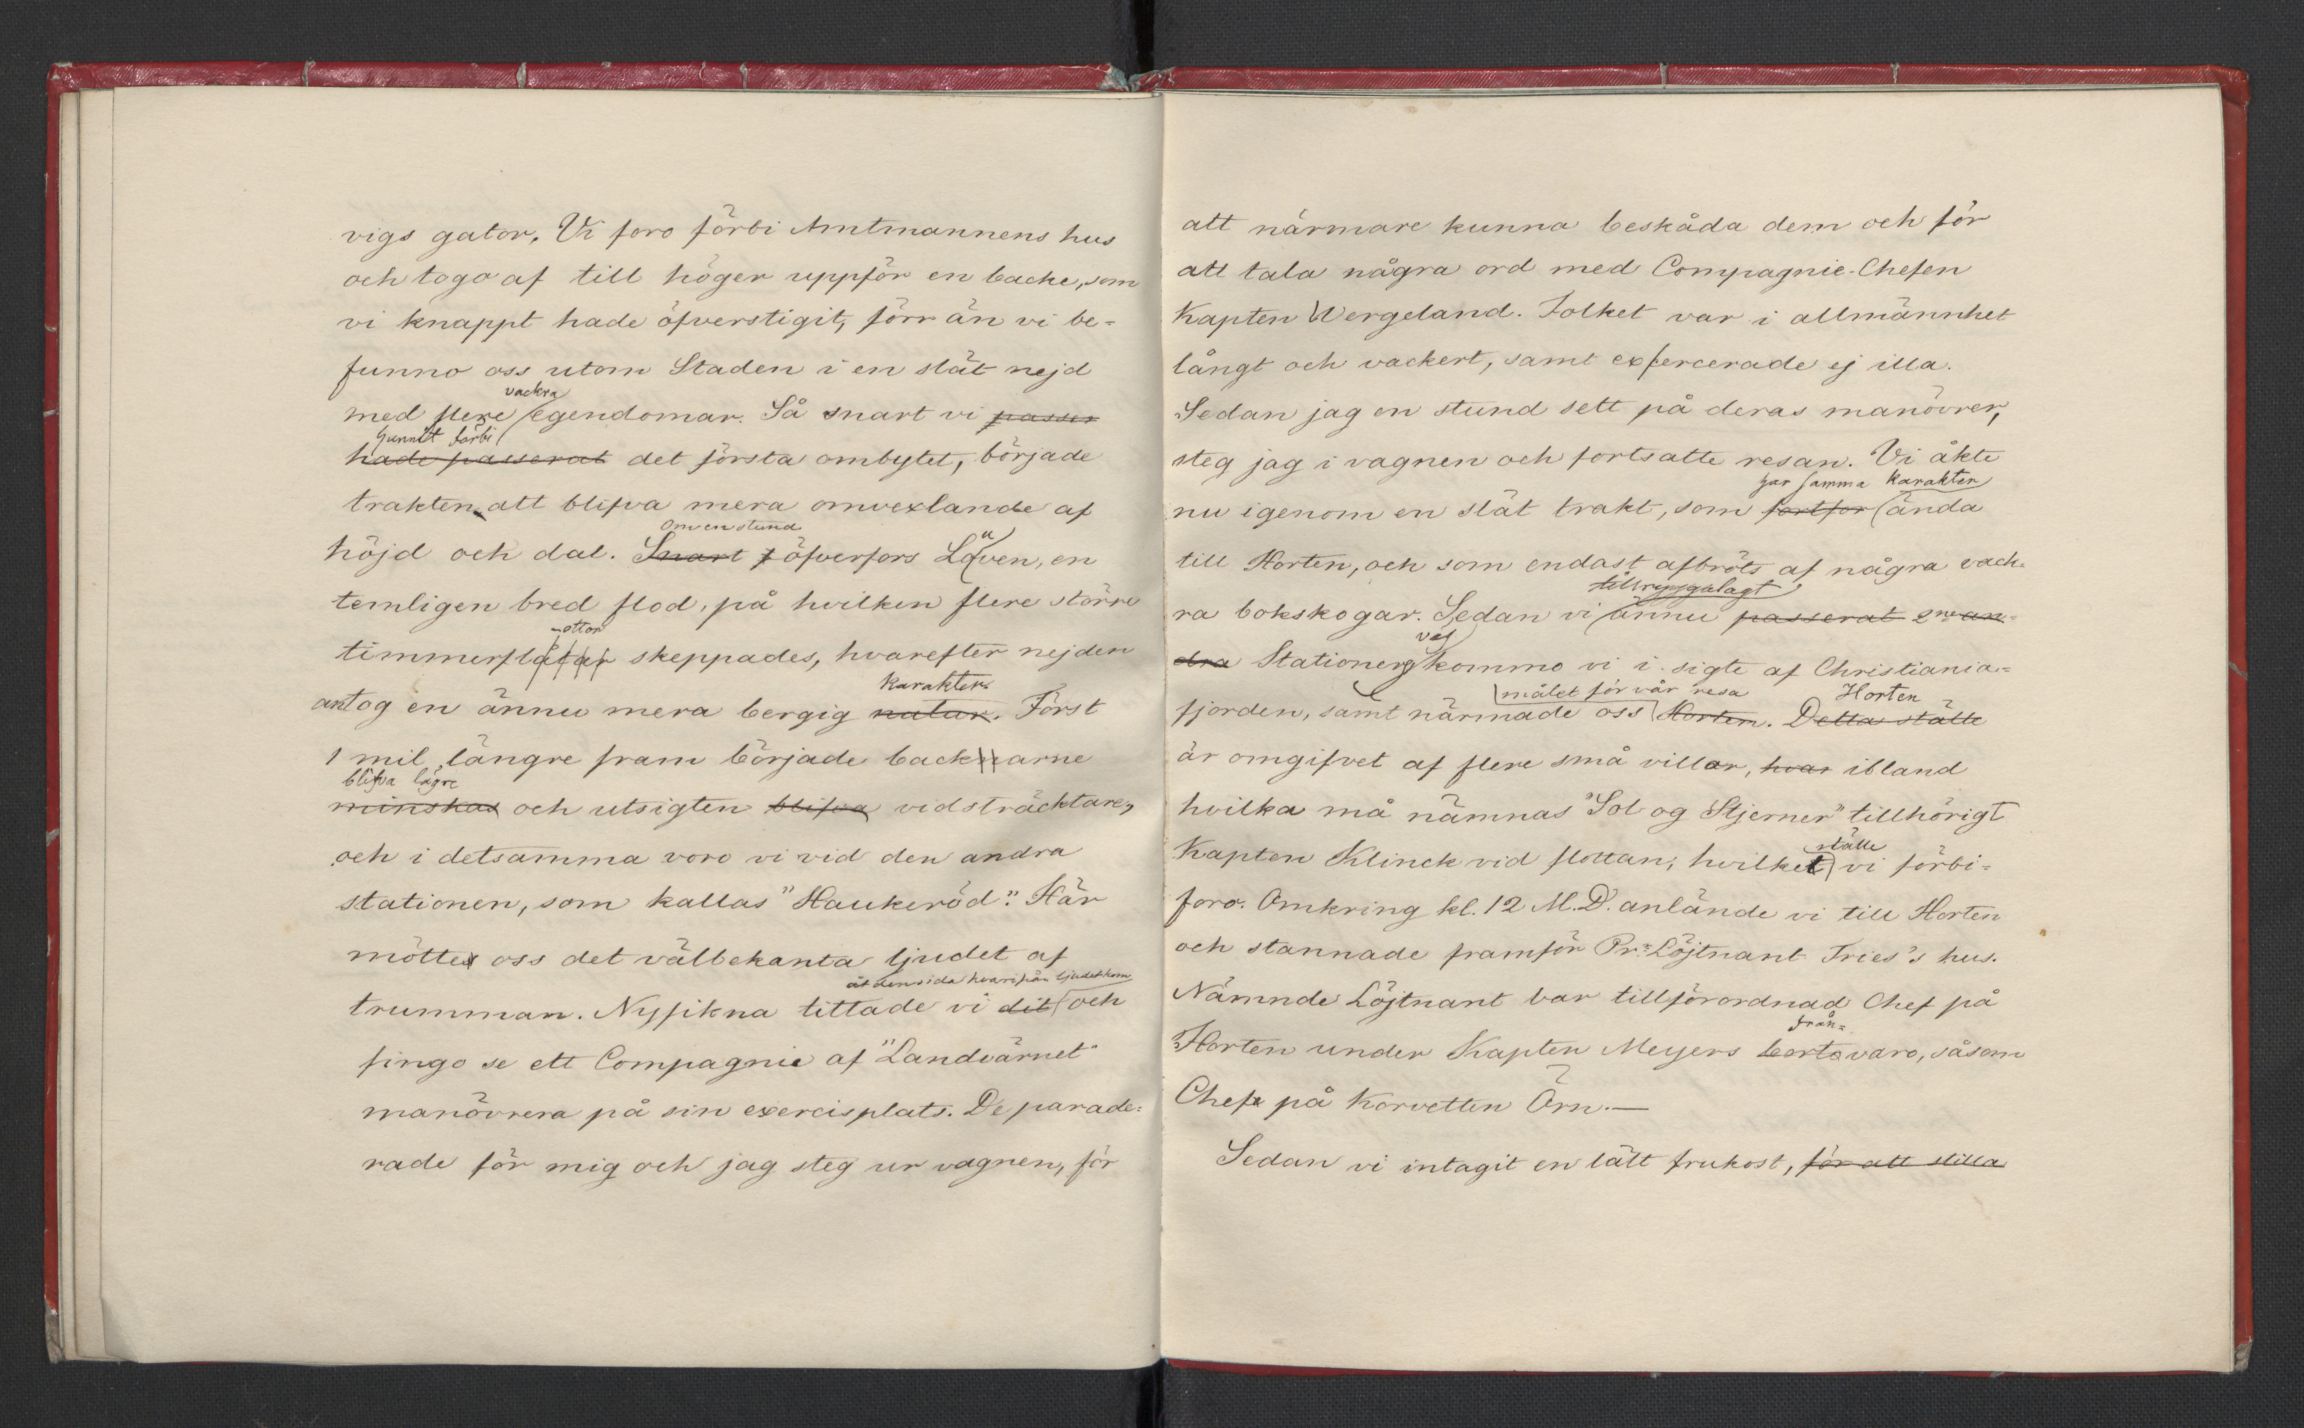 vigs gator. Vi foro förbi Amtmannens hus
och togo af till höger uppför en backe, som
vi knappt hade öfverstigit, förr än vi be-
funno oss utom Staden i en slät nejd
vackra
med flere egendomar. Så snart vi passer
hunnit förbi
hade passerat det första ombytet, började
trakten att blifva mera omvexlande af
Om en stund
höjd och dal. Snart öfverfors Lauven, en
temligen bred flod, på hvilken flere större
-ottor
timmerflåtar skeppades, hvarefter nejden
karakter.
antog en ännu mera bergig natur. Först
1 mil längre fram började backarne
blifva lägre
minskas och utsigten blifva vidsträcktare,
och i detsamma voro vi vid den andra
stationen, som kallas "Haukeröd". Här
mötte oss det välbekanta ljudet af
åt den sida hvarifrån ljudet kom
trumman. Nyfikna tittade vi dit och
fingo se ett Compagnie af "Landvärnet"
manövrera på sin exercisplats. De parade-
rade för mig och jag steg ur vagnen, för
att närmare kunna beskåda dem och för
att tala några ord med Compagnie-Chefen
Kapten Wergeland. Folket var i allmännhet
långt och vackert, samt exercerade ej illa.
Sedan jag en stund sett på deras manövrer,
steg jag i vagnen och fortsatte resan. Vi åkte
har samma karakter
nu igenom en slät trakt, som fortfor ända
till Horten, och som endast afbröts af några vack-
tillryggalagt
ra bokskogar. Sedan vi ännu passerat 2ne an-
dra Stationer kommo vi i sigte af Christiania-
målet för vår resa Horten
fjorden, samt närmade oss Horten. Detta ställe
är omgifvet af flere små villor, hvar ibland
hvilka må nämnas "Sol og Stjerner" tillhörigt
ställe
Kapten Klinck vid flottan, hvilket vi förbi-
foro. Omkring kl. 12 M.D. anlände vi till Horten
och stannade framför Pr. Löjtnant Fries's hus.
Nämnde Löjtnant var tillförordnad Chef på
från-
Horten under Kapten Meyers bortovaro, såsom
Chef på Korvetten Örn.—
Sedan vi intagit en lätt frukost, för att stilla